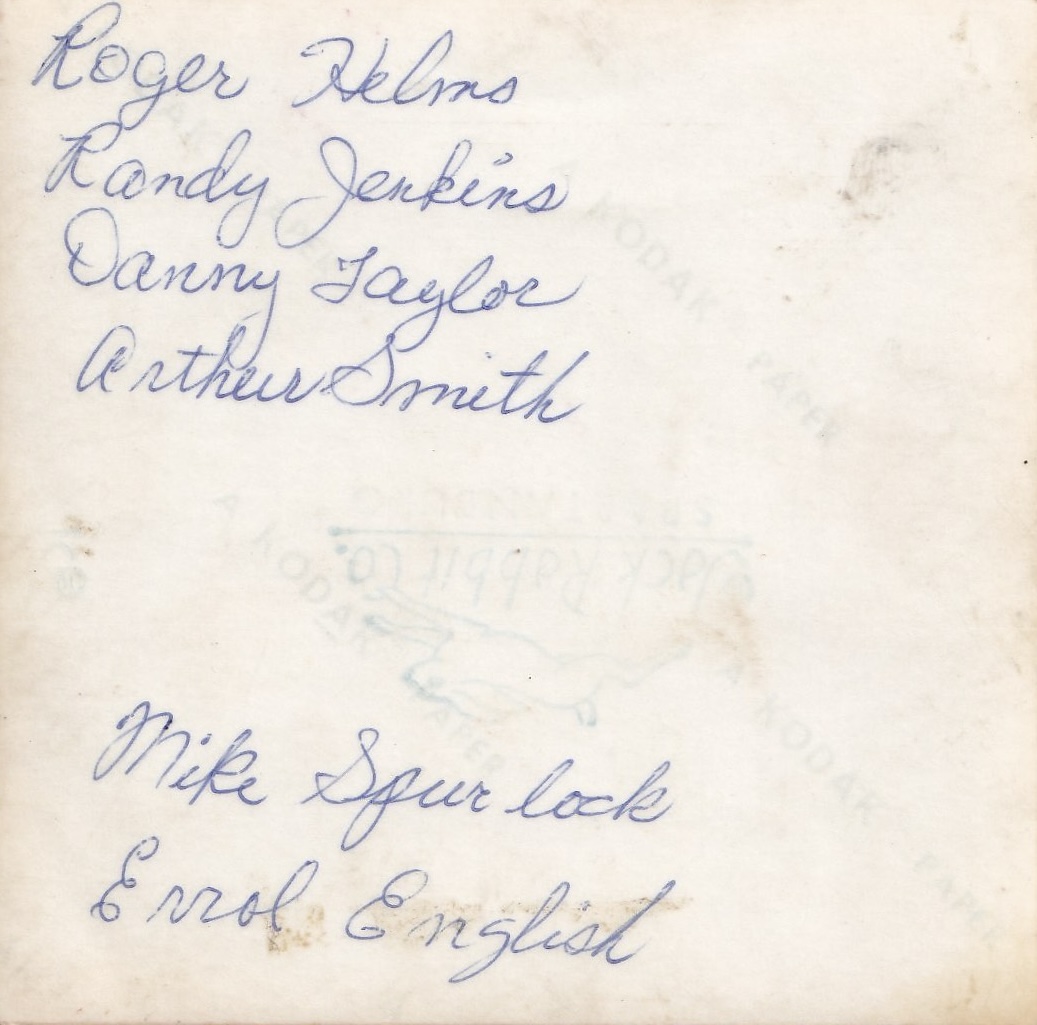 Roger Helms
Randy Jenkins
Danny Taylor
Arthur Smith
A KODAK PAPER
Jack Rabbit Co.
A KODAK PAPER
A KODAK PAPER
Mike Spurlock
Errol English